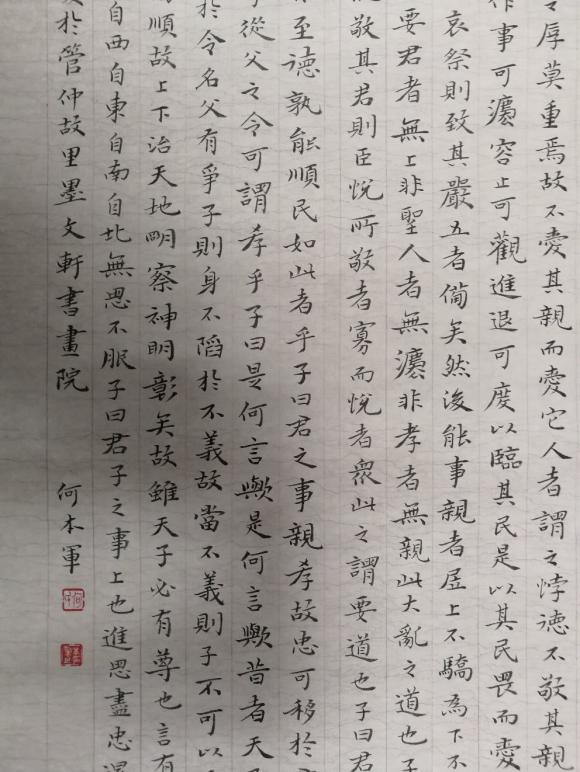 之厚莫重焉故不愛其親而愛它人者謂之悖德不敬其親
作事可灋容止可觀進退可度以臨其民是以其民畏而愛
哀祭則致其嚴五者備矣然後能事親者居上不驕為下不
要君者無上非聖人者無灋非孝者無親此大亂之道也子
敬其君則臣悅所敬者寡而悅者眾此之謂要道也子曰君
至德孰能順民如此者乎子曰君之事親孝故忠可移於
從父之令可謂孝乎子曰是何言歟是何言歟昔者天
於令名父有爭子則身不陷於不義故當不義則子不可以
順故上下治天地明察神明彰矣故雖天子必有尊也言有
自西自東自南自北無思不服子曰君子之事上也進思盡忠退
於管仲故里墨文軒書畫院 何本軍